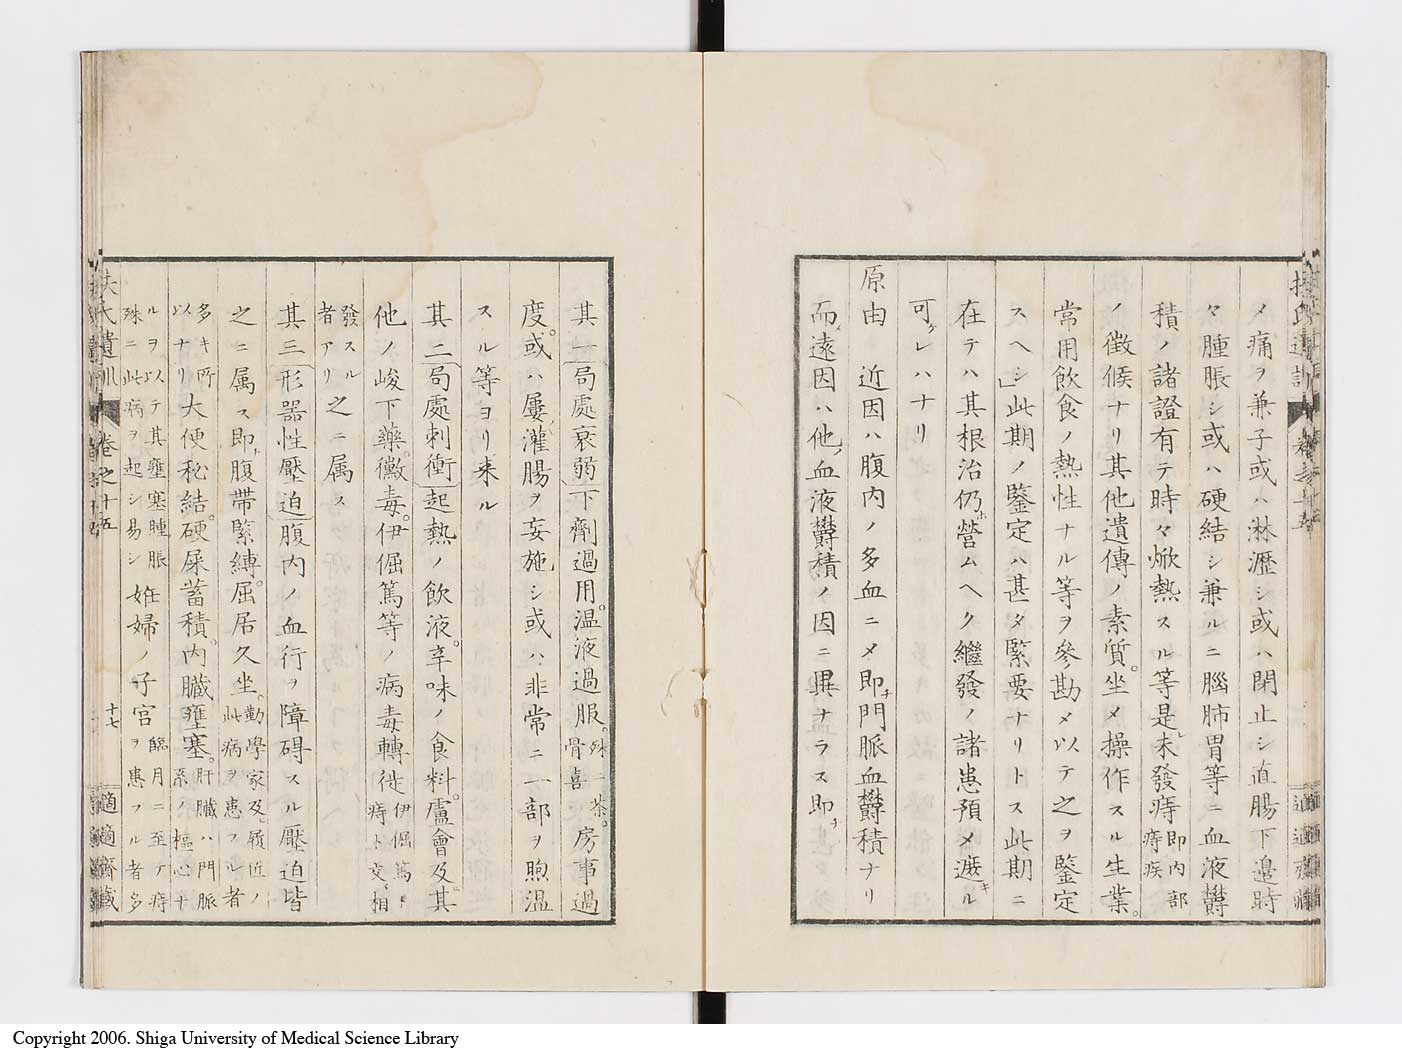 メ痛ヲ兼子或ハ淋瀝シ或ハ閉止シ直腸下邉時
々腫脹シ或ハ硬結シ兼ルニ腦肺胃等ニ血液欝
積ノ諸證有テ時々焮熱スル等是レ未發痔即内部痔疾
ノ徴候ナリ其他遺傳ノ素質。坐メ操作スル生業。
常用飲食ノ熱性ナル等ヲ參勘メ以テ之ヲ鑒定
スヘシ」此期ノ鑒定ハ甚タ緊要ナリトス此期ニ
在テハ其根治仍ホ營ムヘク繼發ノ諸患預メ遮キル
可ケレハナリ
原由 近因ハ腹内ノ多血ニメ即チ門脈血欝積ナリ
而メ遠因ハ他ノ血液欝積ノ因ニ異ナラス即チ
其一局處衰弱下劑過用。温液過服。殊ニ茶。骨喜房事過
度。或ハ屢〻灌腸ヲ妄施シ或ハ非常ニ一部ヲ煦温
スル等ヨリ来ル
其二局處刺衝起熱ノ飲液。辛味ノ食料。盧會及ヒ其
他ノ峻下藥。黴毒。伊倔篤等ノ病毒轉徙伊倔篤ト痔ト交、相
發スル者アリ之ニ属ス
其三形器性壓迫腹内ノ血行ヲ障碍スル壓迫皆
之ニ属ス即チ腹帯緊縛。屈居久坐。勤學家及ヒ履匠ノ此病ヲ患フル者
多キ所以ナリ大便秘結。硬屎蓄積。内臓壅塞。肝臓ハ門脈系ノ樞心ナ
ルヲ以テ其壅塞腫脹殊ニ此病ヲ起シ易シ姙婦ノ子宮臨月ニ至テ痔ヲ患フル者多
扶氏遺訓
卷之十五
十七
適適齋藏
Copyright 2006. Shiga University of Medical Science Library